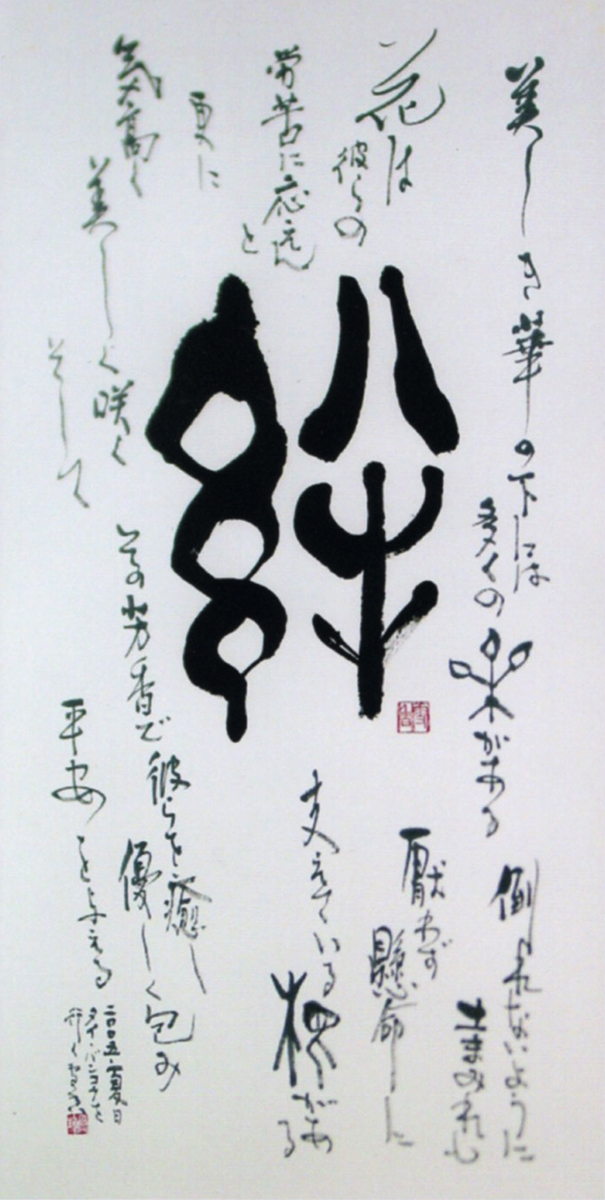 美しき華の下には
多くの
がある
倒れないように
土まみれも
厭わず
懸命に
支えている
がある
絆
花は
彼らの
労苦に応えん
と
更に
氣高く
美しく咲く
そして
その芳香で
彼らを癒し
優しく包み
平安
二〇〇五・夏日
タイ・バンコクにて